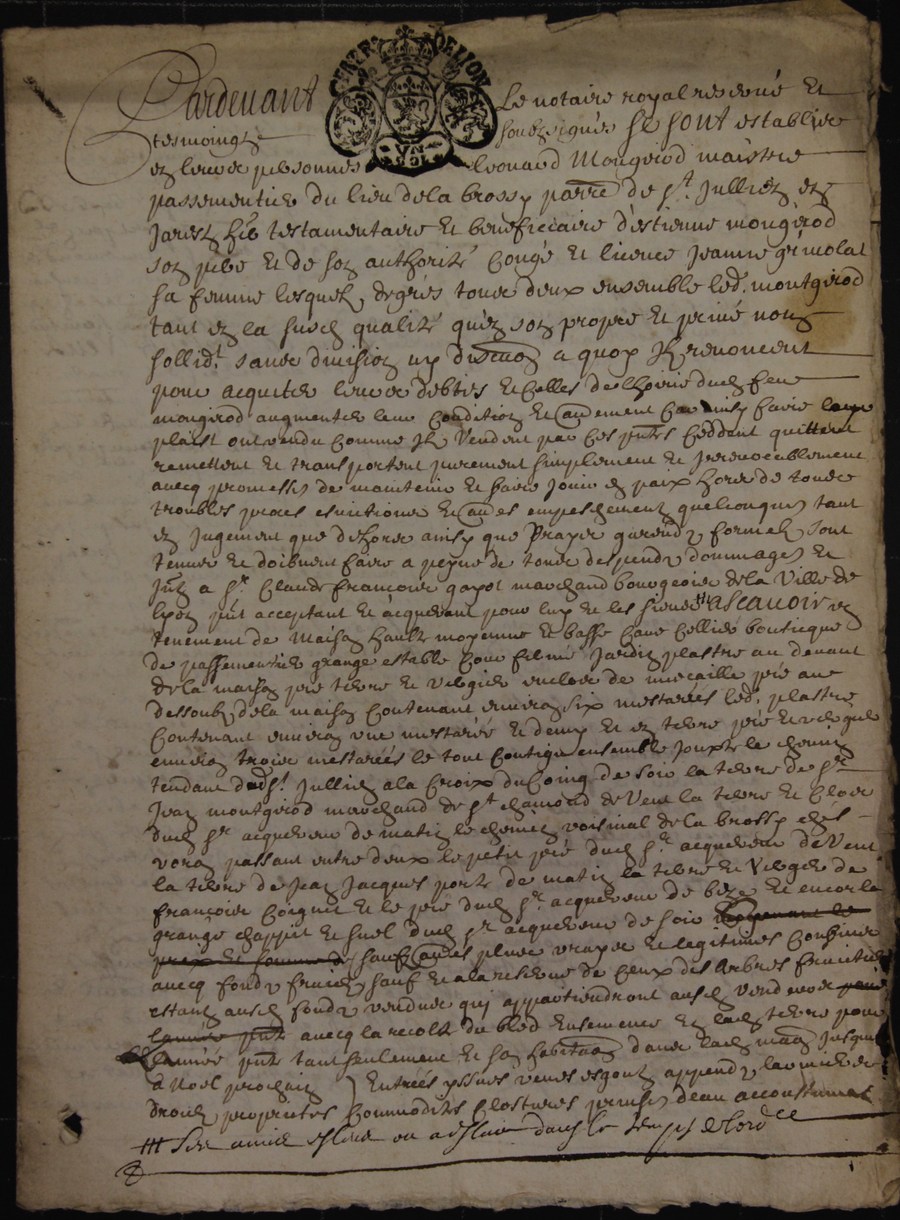 GNATR DE LION
VN SOL
Pardevant Le notaire royal reservé Et
tesmoings soubzsignés se sont establis
en leurs personnes Leonard Mongirod maistre
passementier du lieu de la brosse parre de St Jullien en
Jarestz hér testamentaire et beneficiaire d'estienne mongirod
son pere Et de son authorité Congé Et licence Jeanne grimolat
sa femme lesquelz degrés tous deux ensemble led. montgirod
tant en la susd qualité qu'en son propre Et privé nom
sollidt sans division ny discuon a quoy Ilz renoncent
pour acquiter leurs debtes Et Celles de lhoirie dud feu
mongirod augmenter leur Condition Et aultrement Car ainsy faire leur
plaist ont vendu Comme Ilz Vendent par Ces pntes Ceddent quittent
remettent Et transportent purement simplement Et Irrevocablement
avecq promesse de maintenir Et faire Jouir en paix Hors de tous
troubles proces esvictions Et aultres empeschement quelconques tant
en Jugement que dehors ainsy que Vrays garendz formelz sont
tenus Et doibvent faire a peyne de tous despendz dommages Et
Intz a Sr Claude francois gayot marchand bourgeois de la Ville de
Lyon pnt acceptant Et acquerant pour luy Et les siens ascavoir un
tenement de Maison haulte moyenne Et basse Cave Cellier bouticque
de passementier grange estable Cour fermé Jardin plastre au devant
de la maison pré terre Et vergier enclos de muraille pré au
dessoubz de la maison Contenant environ six mestarées led. plastre
Contenant environ une mestarée Et demy Et en terre pré Et vergier
environ trois mestarées le tout Contigu ensemble Jouxte le chemin
tendant dudt St Jullien a la Croix du Coing de soir la terre de Sr
Jean montgirod marchand de St chamond de Vent la terre Et Clos
dud Sr acquereur de matin le chemin voisinal de la brosse ches
voron passant entre deux le petit pré dud Sr acquereur de Vent
la terre de Jean Jacques porte de matin la terre Et Vergier de
francois Coignet Et le pré dud Sr acquereur de bize Et encor la
grange chappit Et suel dud Sr acquereur de soir moyenant le
prix Et somme de sauf aultres plus vrays Et legitimes Confins
avecq fondz fruictz sauf Et a la reserve de Ceux des Arbres fruictiers
estantz ausd fondz vendus qui appartiendront ausd vendeurs pour
lannée pnte avecq la recolte du bled Ensemencé En lad terre pour
lannée pnte tant seulement Et son habitaon dans lad maon Jusques
a Noel prochain Entrées yssues veues esgoutz appendz
droictz proprietés Commodités Clostures prinses deau accoustumés